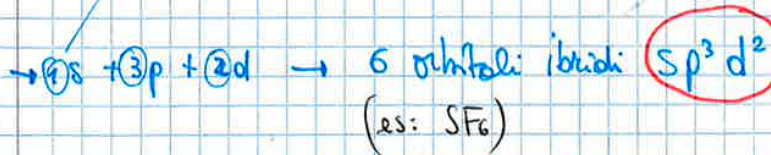 → 1s + 3p + 2d → 6 orbitali ibridi sp³d²
(es: SF₆)